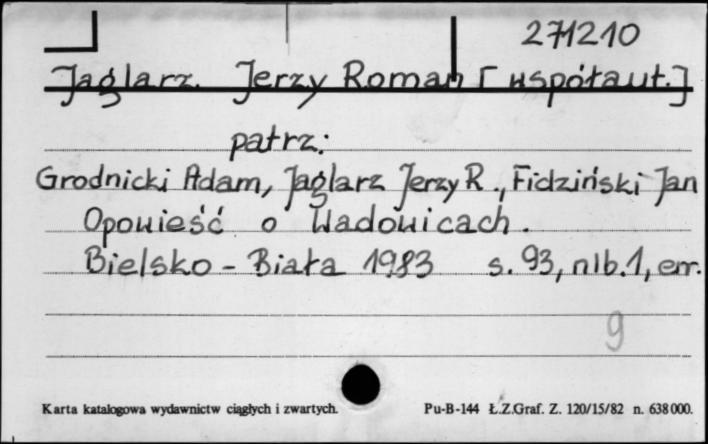 271210
Jaglarz. Jerzy Roman [współaut.]
patrz:
Grodnicki Adam, Jaglarz Jerzy R., Fidziński Jan
Opowieść o Wadowicach.
Bielsko - Biała 1983 s. 93, nlb.1, err.
9
Karta katalogowa wydawnictw ciągłych i zwartych. Pu-B-144 Ł.Z.Graf. Z. 120/15/82 n. 638000.